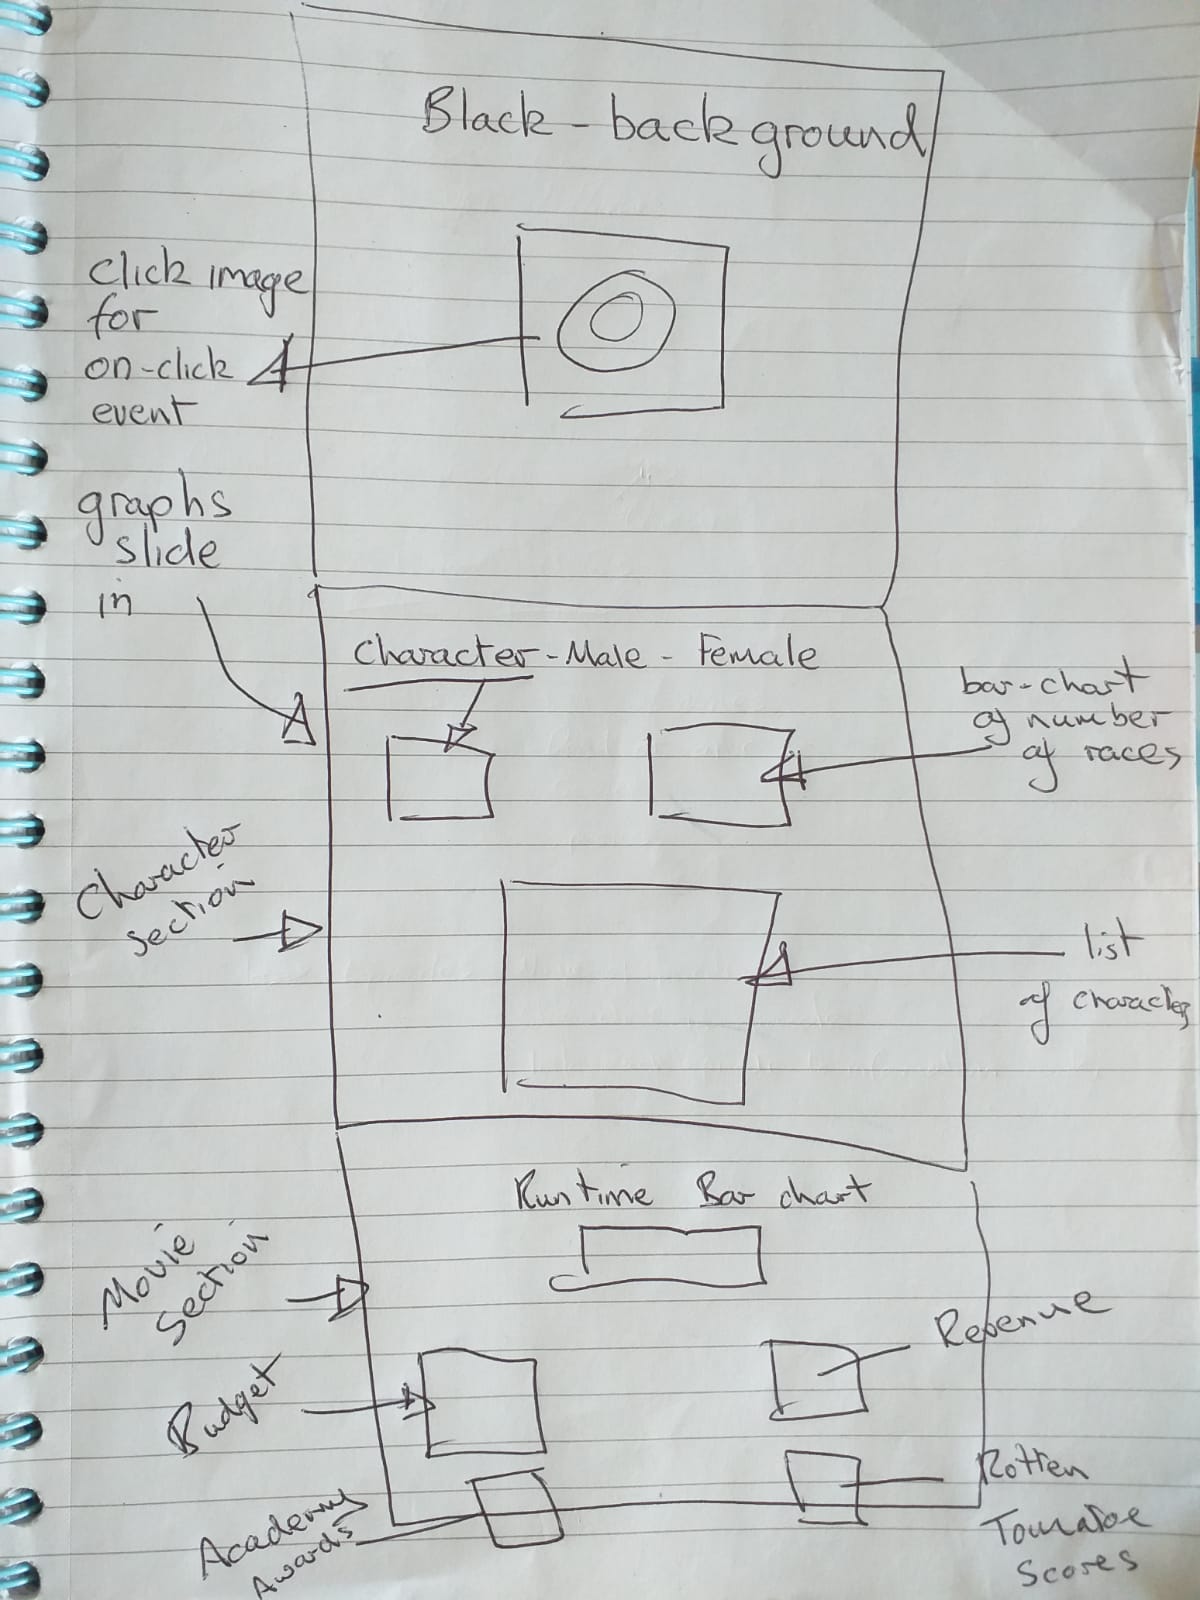 Black-background
click image
for
on-click
event
graphs
slide
in
Character-Male-Female
bar-chart
of number
of races
Character
Section
list
of characters
Runtime Bar chart
Movie
Section
Revenue
Budget
Rotten
Tomatoe
Scores
Academy
Awards